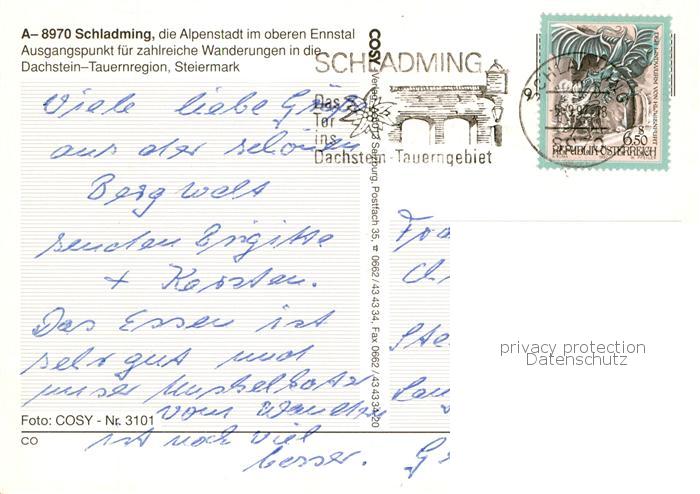 A– 8970 Schladming, die Alpenstadt im oberen Ennstal
Ausgangspunkt für zahlreiche Wanderungen in die
Dachstein–Tauernregion, Steiermark
SCHLADMING
Das
Tor
ins
Dachstein-Tauerngebiet
SCHLADMING
6.50
REPUBLIK ÖSTERREICH
COSY Verlag
Salzburg, Postfach 35, ☎ 0662 / 43 43 34, Fax 0662 / 43 43 34/20
Viele liebe Grüße
aus der schönen
Bergwelt
senden Brigitte
+ Karsten.
Das Essen ist
sehr gut und
unser Muskelkater
vom Wandern
ist noch viel
besser.
Foto: COSY - Nr. 3101
CO
privacy protection
Datenschutz